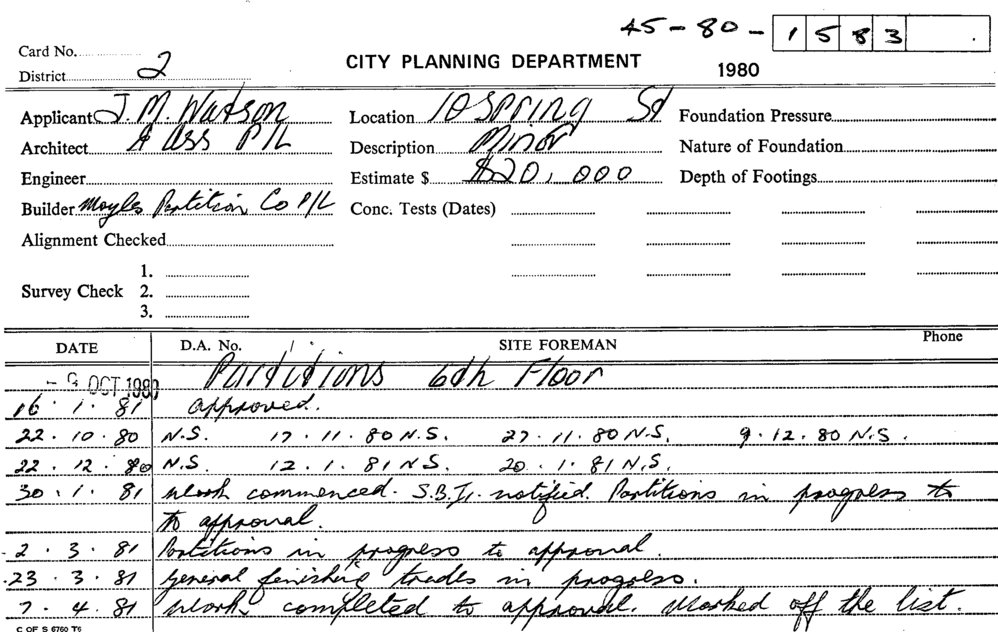 45-80-1583
Card No.
District 2
CITY PLANNING DEPARTMENT
1980
Applicant J. M. Watson Location 10 Spring St Foundation Pressure
Architect & Ass P/L Description Minor Nature of Foundation
Engineer Estimate $ $20,000 Depth of Footings
Builder Moyles Partition Co P/L Conc. Tests (Dates)
Alignment Checked
1.
Survey Check 2.
3.
DATE D.A. No. SITE FOREMAN Phone
- 9 OCT 1980 Partitions 6th Floor
16.1.81 approved.
22.10.80 N.S. 17.11.80 N.S. 27.11.80 N.S. 9.12.80 N.S.
22.12.80 N.S. 12.1.81 N.S. 20.1.81 N.S.
30.1.81 Work commenced. S.B.I. notified. Partitions in progress to
to approval.
2.3.81 Partitions in progress to approval.
23.3.81 General finishing trades in progress.
7.4.81 Work completed to approval. Marked off the list.
C OF S 6760 T6